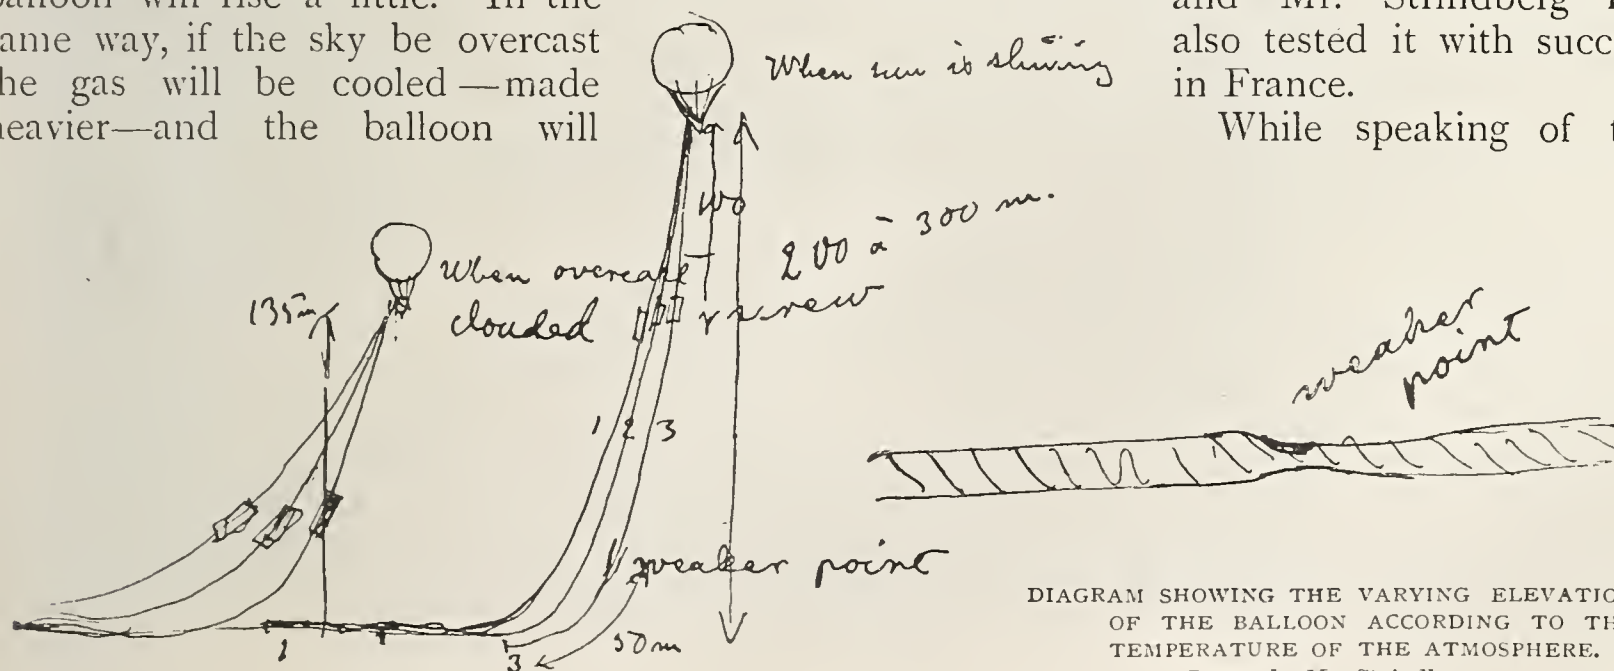 balloon will rise a little. In the
same way, if the sky be overcast
the gas will be cooled—made
heavier—and the balloon will
and Mr. Strindberg
also tested it with succ
in France.
While speaking of t
When sun is shining
100
200 à 300 m.
When overcast
clouded
135 m
screw
1 2 3
weaker point
50 m
1
3
weaker
point
DIAGRAM SHOWING THE VARYING ELEVATIO
OF THE BALLOON ACCORDING TO TH
TEMPERATURE OF THE ATMOSPHERE.